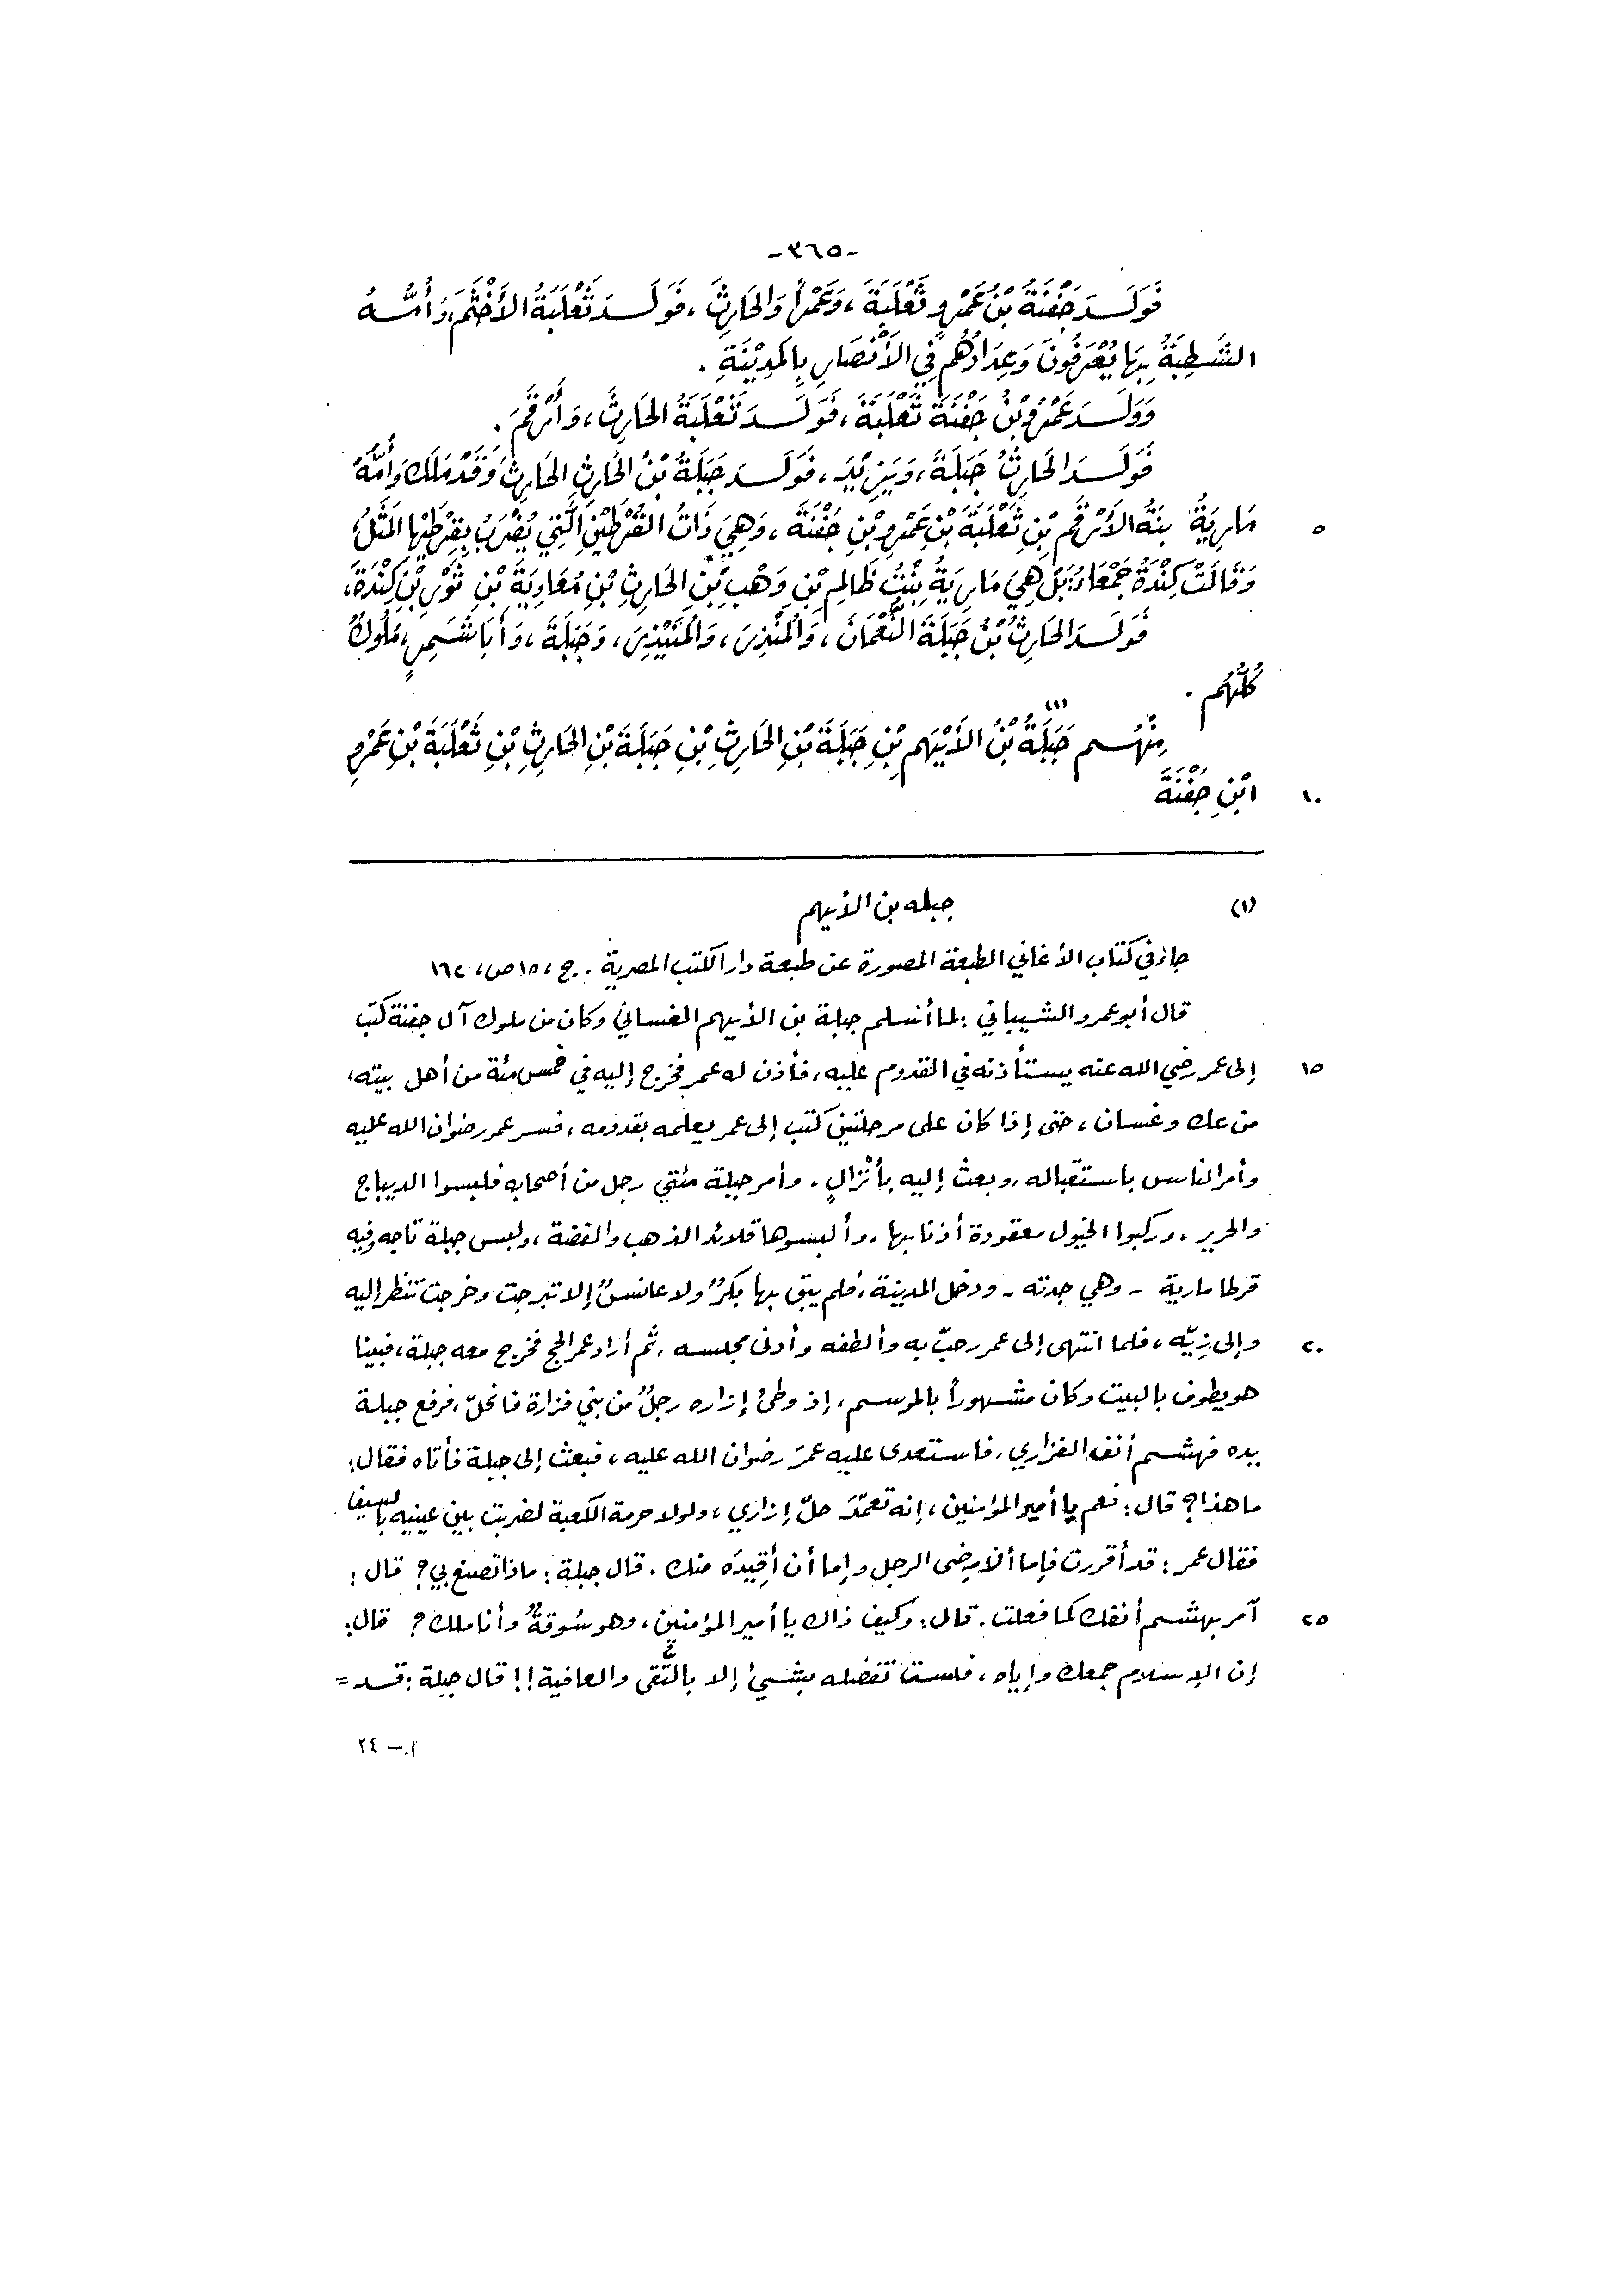 -٣٦٥-
فَوَلَـدَ جَفْنَةُ بْنُ عَمْرٍو ثَعْلَبَةَ، وَعَمْراً وَالحَارِثَ، فَوَلَـدَ ثَعْلَبَةُ الأَخْثَمَ، وَأُمُّـهُ
الشَّطِبَةُ بِهَا يُعْرَفُونَ وَعِدَادُهُم فِي الأَنْصَارِ بِالمَدِيْنَةِ .
وَوَلَـدَ عَمْرُو بْنُ جَفْنَةَ ثَعْلَبَةَ، فَوَلَـدَ ثَعْلَبَةُ الحَارِثَ، وَأَرْقَمَ .
فَوَلَـدَ الحَارِثُ جَبَلَةَ، وَيَزِيْدَ، فَوَلَـدَ جَبَلَةُ بْنُ الحَارِثِ الحَارِثَ وَقَدْ مَلَكَ وَأُمُّهُ
٥ مَارِيَةُ بنَةُ الأَرْقَمِ بْنِ ثَعْلَبَةَ بْنِ عَمْرِو بْنِ جَفْنَةَ، وَهِيَ ذَاتُ القُرْطَيْنِ الَّتِي يُضْرَبُ بِقِرْطَيْهَا المَثَلُ،
وَقَالَتْ كِنْدَةُ جَمْعَاءُ: بَلْ هِيَ مَارِيَةُ بِنْتُ ظَالِمِ بْنِ وَهْبِ بْنِ الحَارِثِ بْنِ مُعَاوِيَةَ بْنِ ثَوْرِ بْنِ كِنْدَةَ،
فَوَلَـدَ الحَارِثُ بْنُ جَبَلَةَ النُّعْمَانَ، وَالمُنْذِرَ، وَالمُنَيْذِرَ، وَجَبَلَةَ، وَأَبَا شَمِرٍ، مُلُوكٌ
كُلُّهُم .
مِنْهُـم جَبَلَةُ (١) بْنُ الأَيْهَمِ بْنِ جَبَلَةَ بْنِ الحَارِثِ بْنِ جَبَلَةَ بْنِ الحَارِثِ بْنِ ثَعْلَبَةَ بْنِ عَمْرِو
١٠ ابْنِ جَفْنَةَ
(١) جبله بن الأيهم
جاء في كتاب الأغاني الطبعة المصورة عن طبعة دار الكتب المصرية . ج، ١٥ ص، ١٦٢
قال أبو عمرو الشيباني : لما أسلم جبلة بن الأيهم الغساني وكان من ملوك آل جفنة كتب
١٥ إلى عمر رضي الله عنه يستأذنه في القدوم عليه، فأذن له عمر فخرج إليه في خمس مئة من أهل بيته،
من عك وغسان، حتى إذا كان على مرحلتين كتب إلى عمر يعلمه بقدومه، فسر عمر رضوان الله عليه
وأمر الناس باستقباله، وبعث إليه بأنْزالٍ . وأمر جبلة مئتي رجل من أصحابه فلبسوا الديباج
والحرير، وركبوا الخيول معقودة أذنابها، وألبسوها قلائد الذهب والفضة، ولبس جبلة تاجه وفيه
قرطا مارية - وهي جدته - ودخل المدينة، فلم يبق بها بكرٌ ولا عانسٌ إلا تبرجت وخرجت تنظر إليه
٢٠ وإلى زِيّه، فلما انتهى إلى عمر رحبّ به وألطفه وأدنى مجلسه، ثم أراد عمر الحج فخرج معه جبلة، فبينا
هو يطوف بالبيت وكان مشهوراً بالموسم، إذ وطئ إزاره رجلٌ من بني فزارة فانحلّ، فرفع جبلة
يده فهشم أنف الفزاري، فاستعدى عليه عمرَ رضوان الله عليه، فبعث إلى جبلة فأتاه فقال:
ما هذا؟ قال: نعم يا أمير المؤمنين، إنه تعمّدَ حلّ إزاري، ولولا حرمة الكعبة لضربت بين عينيه بالسيف
فقال عمر : قد أقررت فإما أن ترضى الرجل وإما أن أقِيدَه منك . قال جبلة : ماذا تصنع بي؟ قال :
٢٥ آمر بهشم أنفك كما فعلت . قال : وكيف ذاك يا أمير المؤمنين، وهو سُوقةٌ وأنا ملك؟ قال :
إن الإسلام جمعك وإياه، فلست تفضله بشيئ إلا بالتُّقى والعافية!! قال جبلة : قـد =
أ. - ٢٤